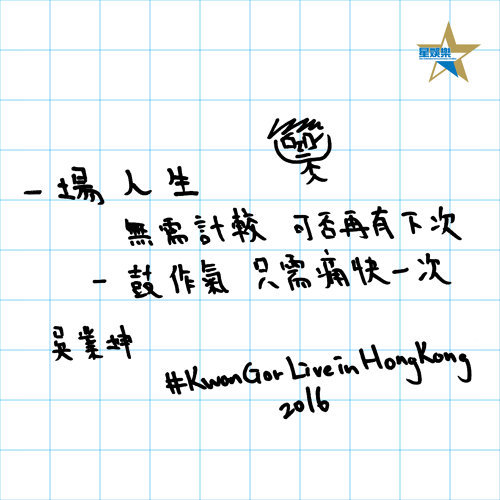 星娛樂
一場人生
無需計較 可否再有下次
一鼓作氣 只需痛快一次
吳業坤
#KwonGorLiveinHongKong
2016